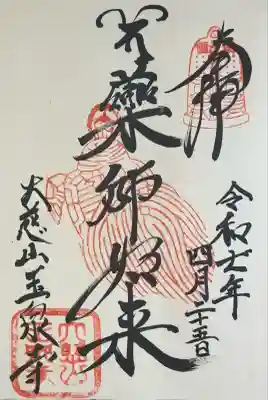 奉拝
令和七年
四月二十五日
薬師如来
大慈山玉泉寺